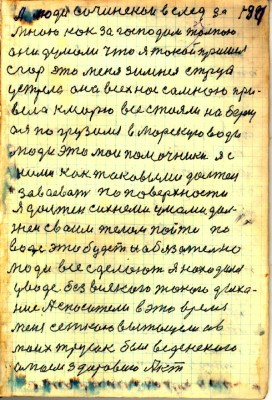 А люди сочинской в след за 1991
мною как за господом толпою
они думали что я такой пришел
с гор это меня зимния струя
у меня она всех но самною при-
вела к морю все стояли на берегу
а я по грузился в морскую воду
люди это мои помочники я с
ними как таковыми должен
завоевать по поверхности
я должен сихними умами дол-
жен своим телом пойти по
воде это будет и обязателно
люди все сделают я находился
у воде без всякого такого дыха-
ние А спосители в это время
меня сеткою вытощили
моих трусах был
о моем здоровии Акт